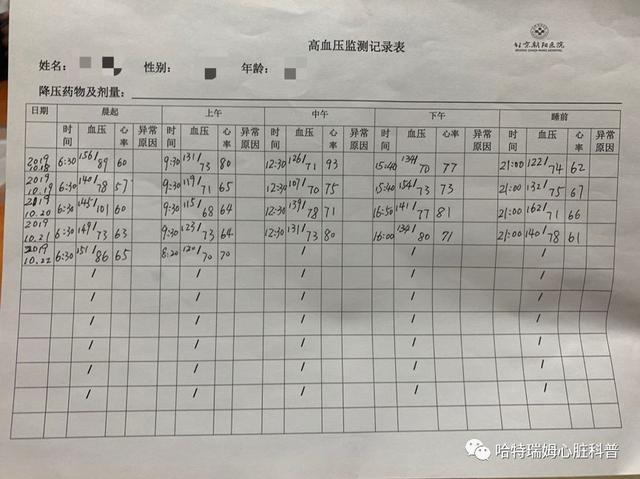 高血压监测记录表 北京朝阳医院
姓名： 性别： 年龄：
降压药物及剂量：
日期 晨起 上午 中午 下午 睡前
时间 血压 心率 异常原因 时间 血压 心率 异常原因 时间 血压 心率 异常原因 时间 血压 心率 异常原因 时间 血压 心率 异常原因
2019 10.18 6:30 156/89 60 9:30 131/73 80 12:30 126/71 93 15:40 134/70 77 21:00 122/74 62
2019 10.19 6:30 140/78 57 9:30 119/71 65 12:30 107/70 75 15:40 154/73 73 21:00 132/75 67
2019 10.20 6:30 145/101 60 9:30 115/68 64 12:30 139/78 71 16:50 141/77 81 21:00 162/71 66
2019 10.21 6:30 149/73 63 9:30 123/73 64 12:30 131/73 80 16:00 134/80 71 21:00 140/78 61
2019 10.22 6:30 151/86 65 8:20 120/70 70 / / /
/ / / / /
/ / / / /
/ / / / /
/ / / / /
/ / / / /
哈特瑞姆心脏科普